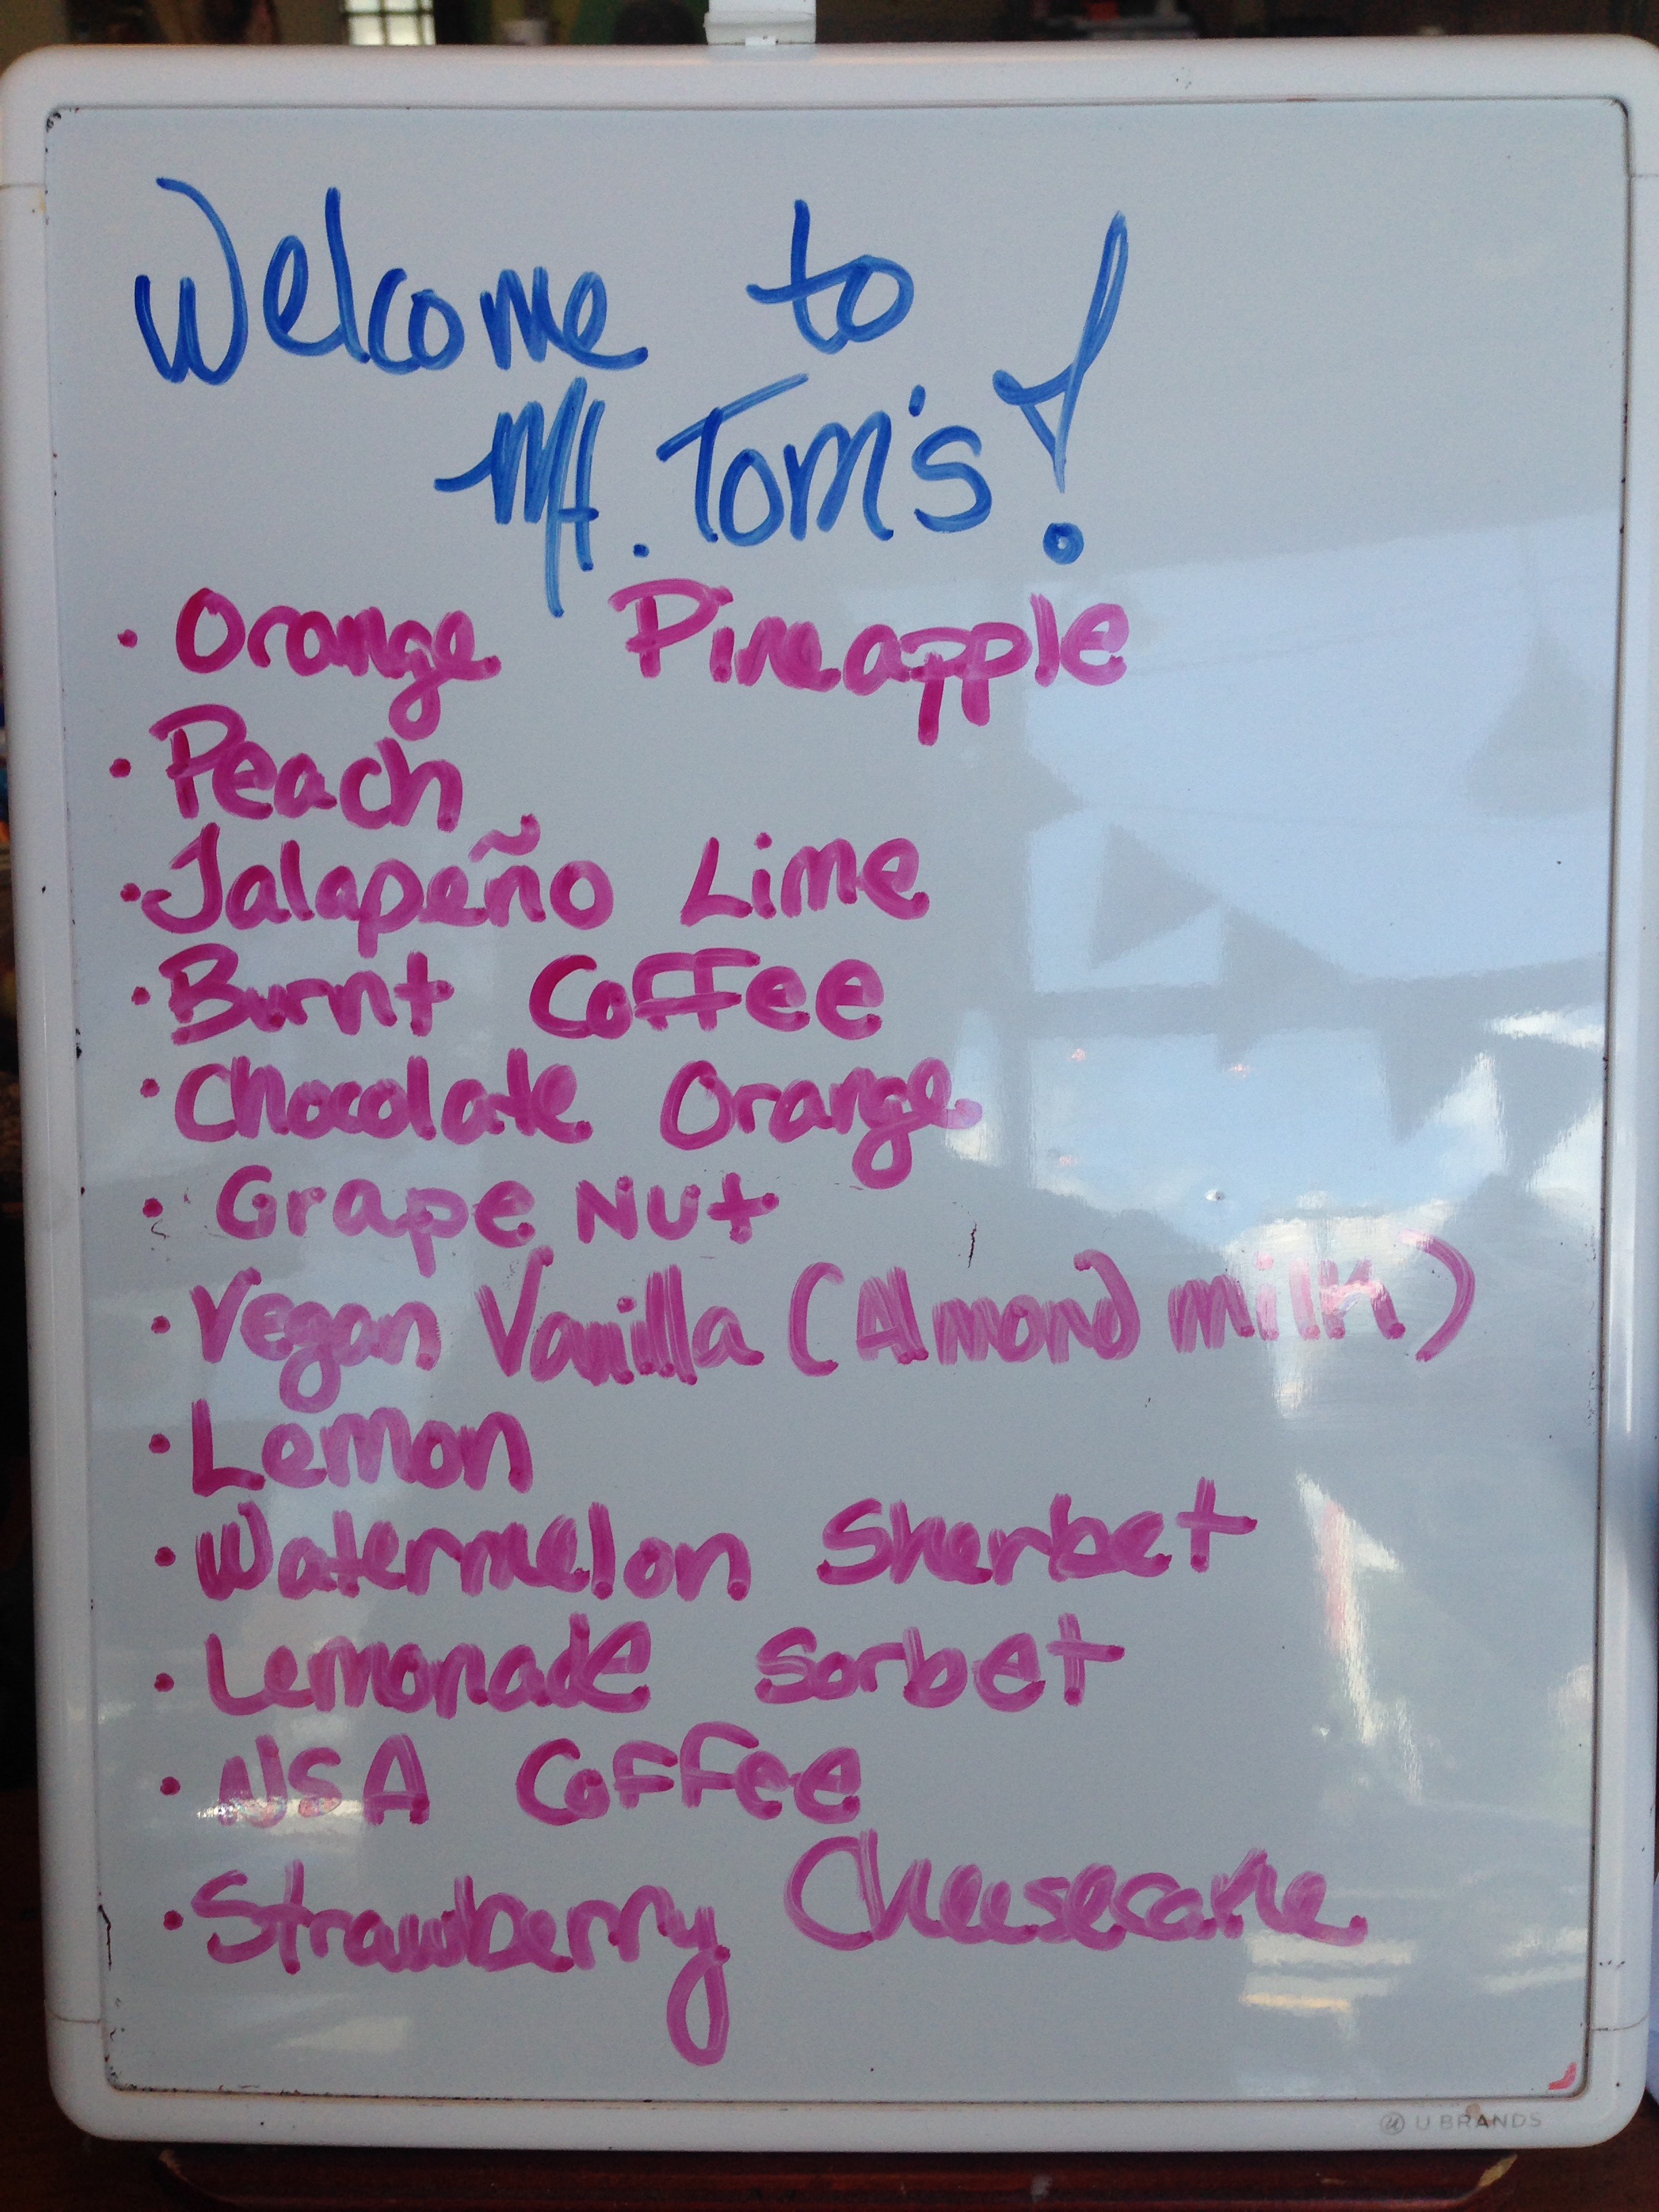 Welcome to
Mt. Tom's!
• Orange Pineapple
• Peach
• Jalapeño Lime
• Burnt Coffee
• Chocolate Orange
• Grape Nut
• Vegan Vanilla (Almond milk)
• Lemon
• Watermelon Sherbet
• Lemonade Sorbet
• NSA Coffee
• Strawberry Cheesecake
U BRANDS